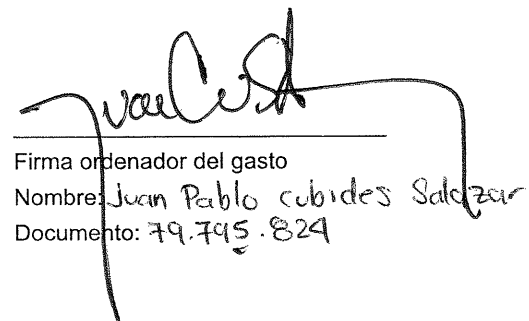 Firma ordenador del gasto
Nombre: Juan Pablo cubides Salazar
Documento: 79.795.824